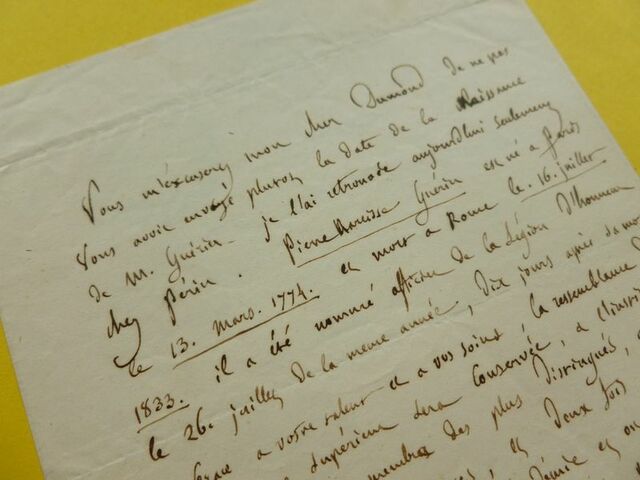 Vous m'excuserez mon cher Dumond de ne pas
vous avoir envoyé plutot la date de la Naissance
de M. Guérin. je l'ai retrouvée aujourd'hui seulement
chez Périn. Pierre Narcisse Guérin est né a Paris
le 13. mars. 1774. et mort a Rome le 16. juillet
1833. il a été nommé officier de la Légion D'honneur
le 26. juillet de la meme année, dix jours apres sa mo
Grace a votre talent et a vos soins, la ressemblance
supérieur sera conservée, a l'insti
membres des plus distingués,
deux fois